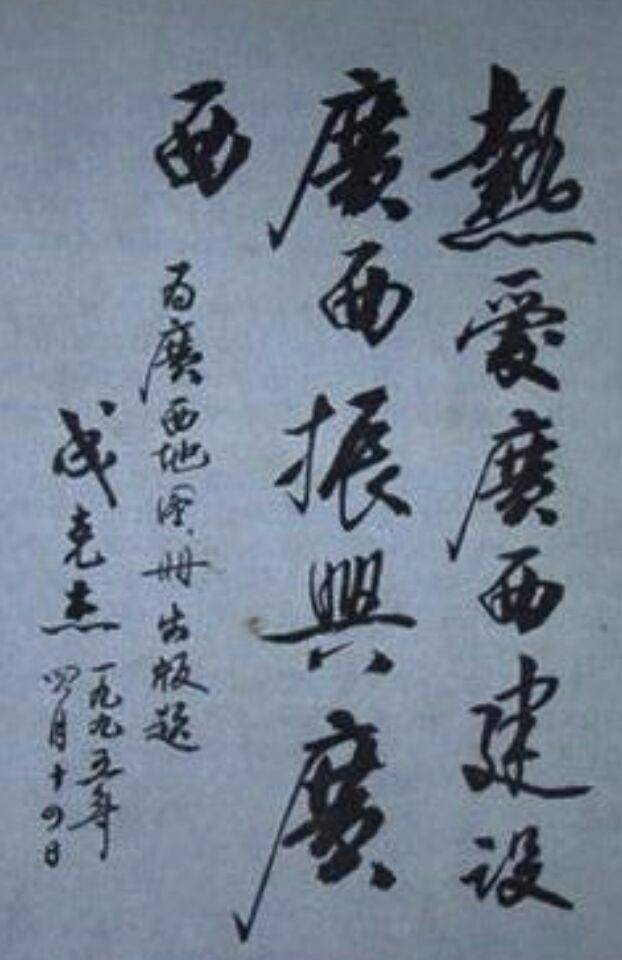 熱愛廣西建设
廣西振興廣
西
为廣西地图册出版题
成克杰
一九九五年
四月十四日